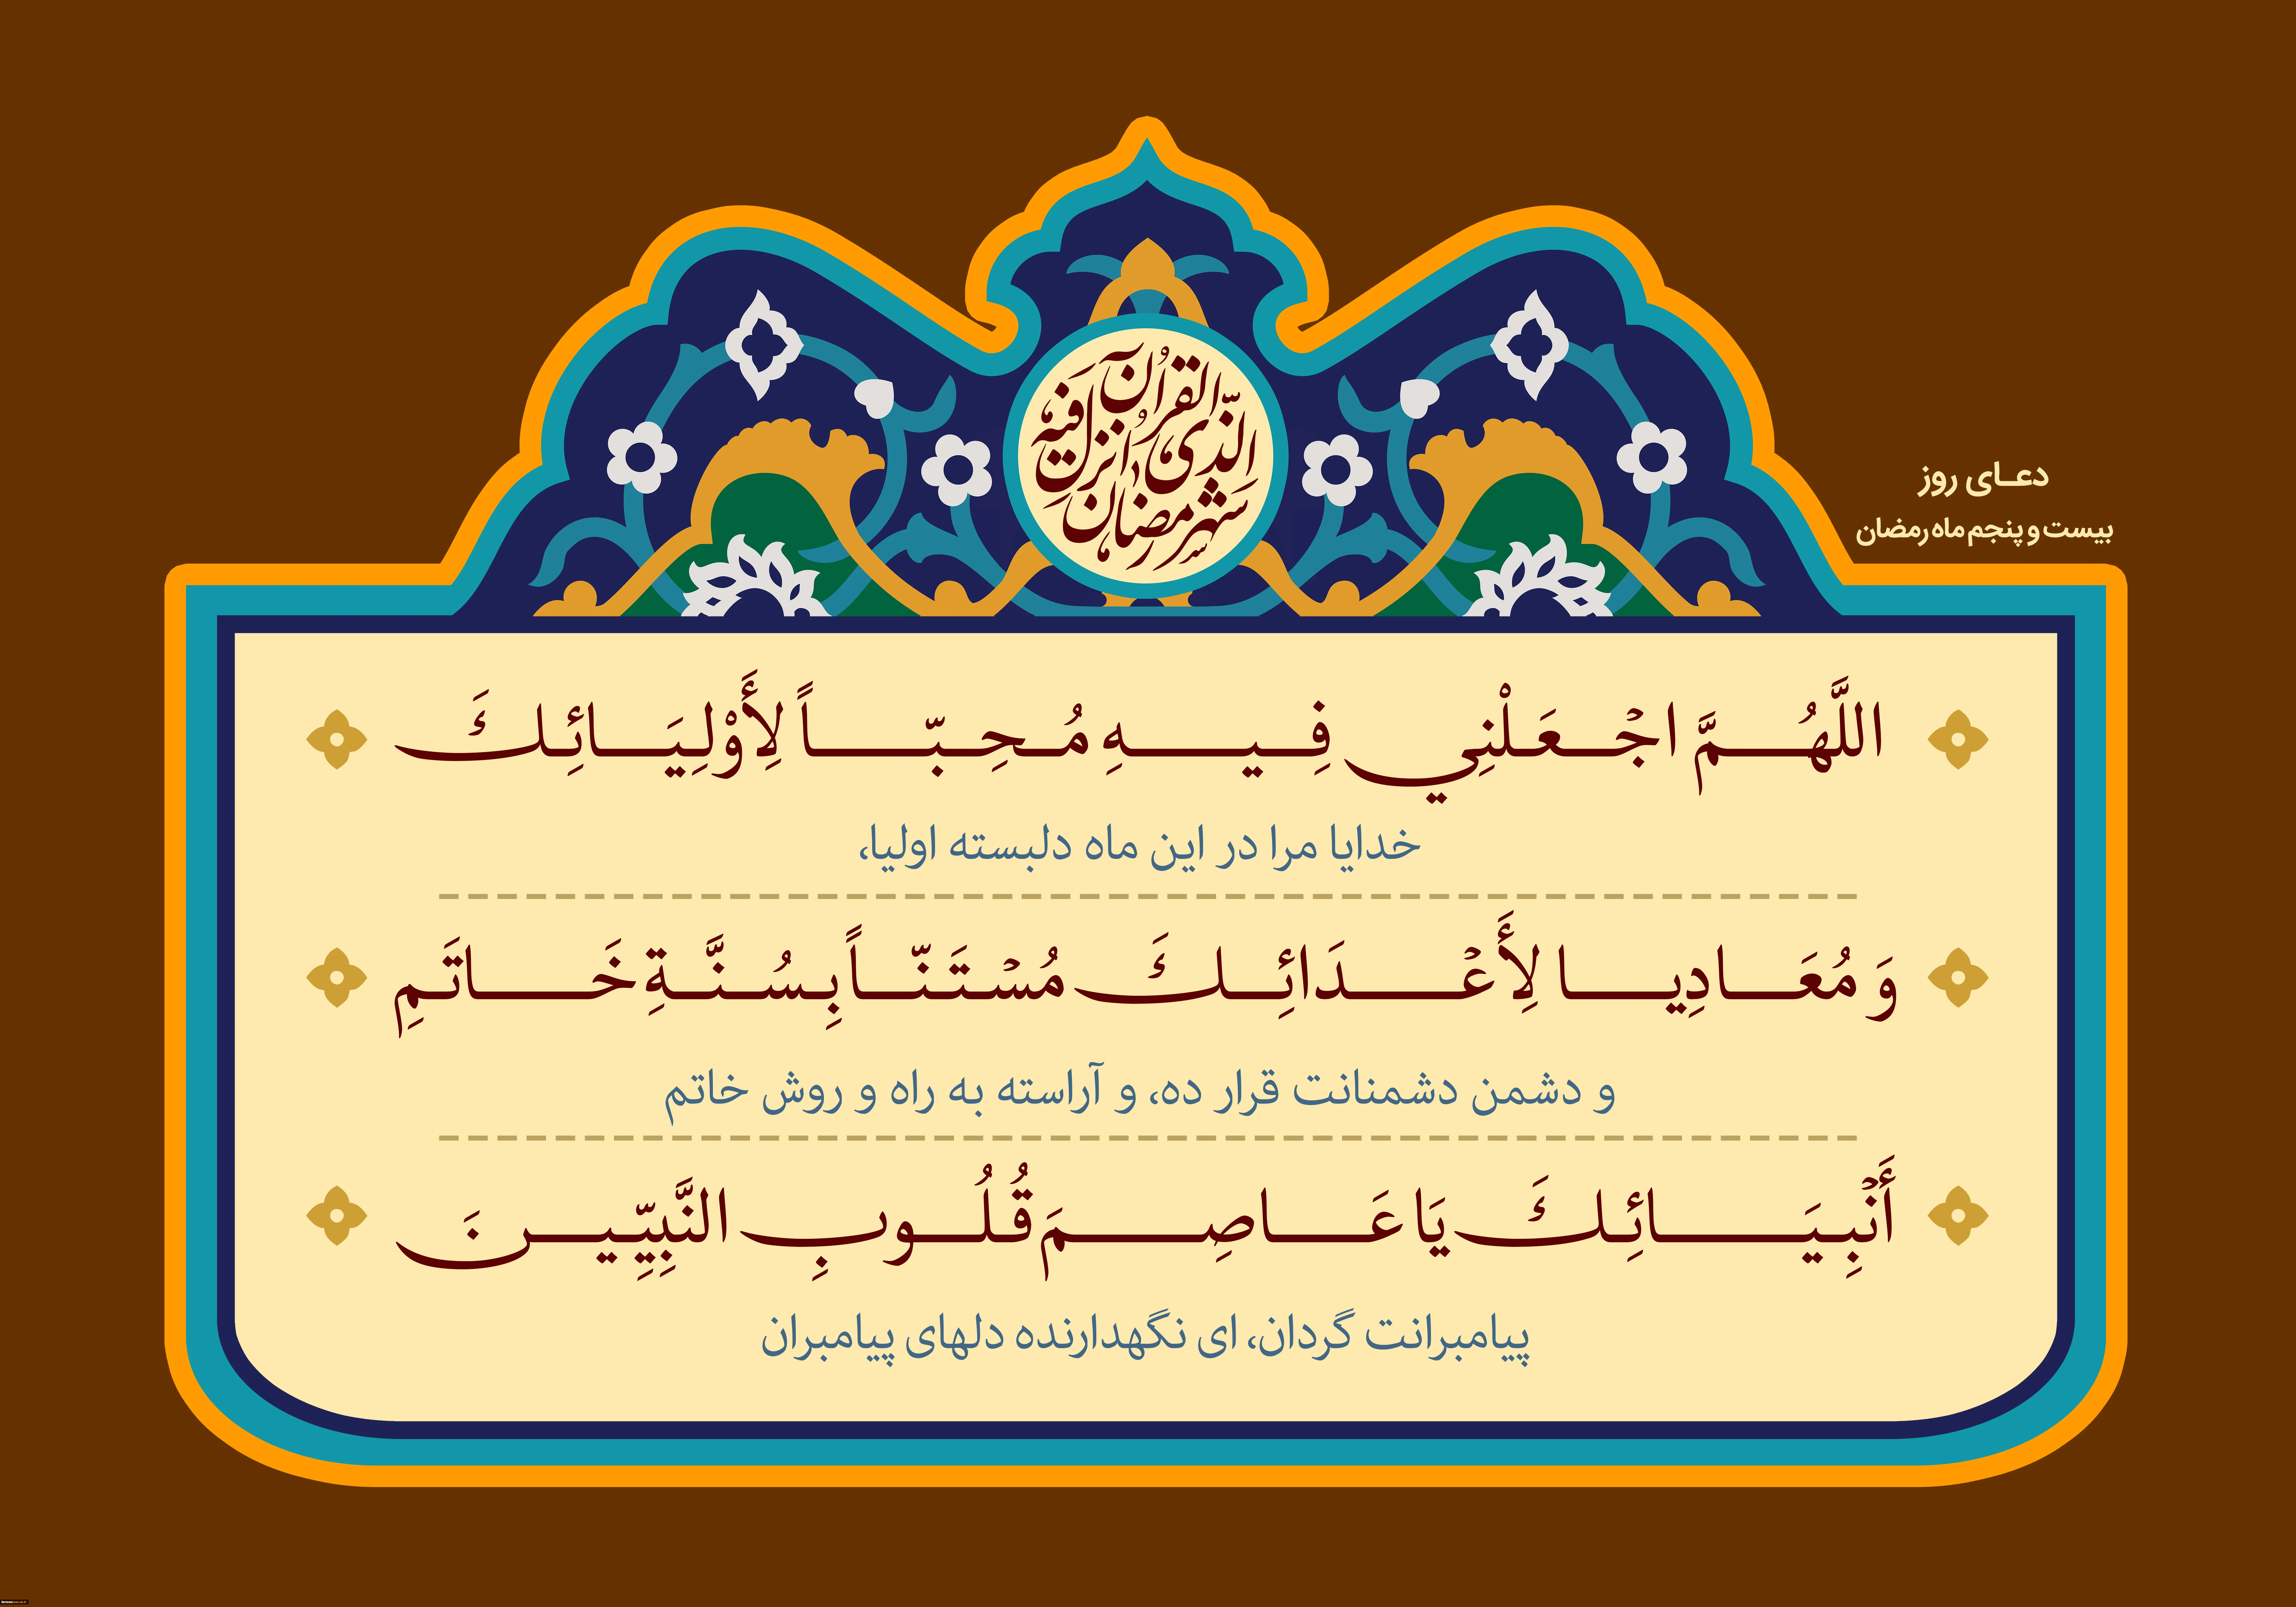 شهر رمضان
الذي أنزل فيه
القرآن
دعای روز
بیست و پنجم ماه رمضان
اللَّهُمَّ اجْعَلْنِي فِيهِ مُحِبّاً لِأَوْلِيَائِكَ
خدایا مرا در این ماه دلبسته اولیا،
وَ مُعَادِيا لِأَعْدَائِكَ مُسْتَنّاً بِسُنَّةِ خَاتَمِ
و دشمن دشمنانت قرار ده، و آراسته به راه و روش خاتم
أَنْبِيَائِكَ يَا عَاصِمَ قُلُوبِ النَّبِيِّينَ
پیامبرانت گردان، ای نگهدارنده دلهای پیامبران